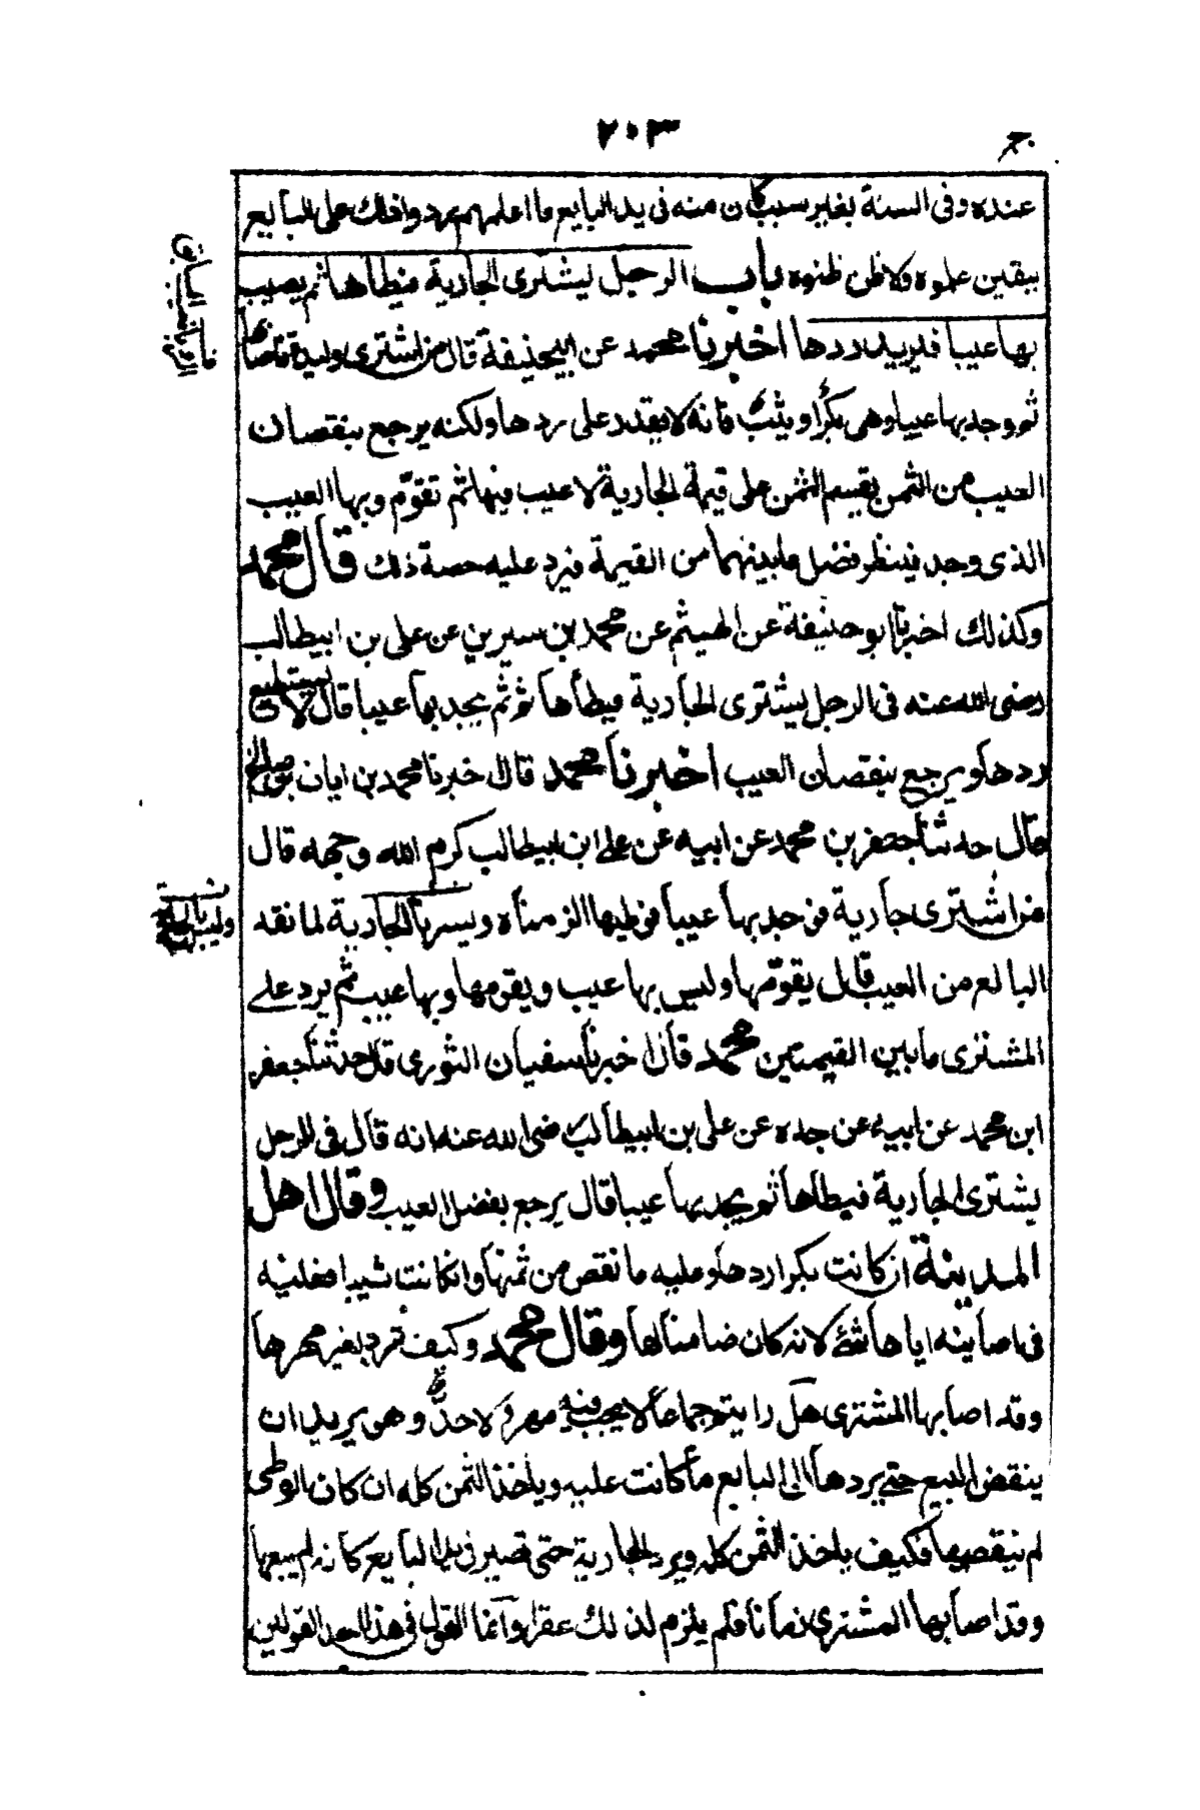 ٢٠٣
عنده وفي السنة بغير سبب كان منه في يد البايع ما اعلمهم يردوا ذلك على البايع
بيقين علموه ولا ظن ظنوه باب الرجل ليشترى الجارية فيطأها ثم يصيب
بها عيبا فيريد ردها اخبرنا محمد عن ابيحنيفة قال من اشترى وليدة فاصابها
ثم وجد بها عيبا وهى بكرا و ثيب فانه لا يقدر على ردها ولكنه يرجع بنقصان
العيب من الثمن يقسم الثمن على قيمة الجارية لا عيب فيها ثم تقوّم وبها العيب
الذى وجد فينظر فضل ما بينهما من القيمة فيرد عليه حصة ذلك قال محمد
وكذلك اخبرنا ابو حنيفة عن الهيثم عن محمد بن سيرين عن على بن ابيطالب
رضى الله عنه في الرجل يشترى الجارية فيطأها ثم يجد بها عيبا قال لا يستطيع
ردها ويرجع بنقصان العيب اخبرنا محمد قال خبرنا محمد بن ابان بن صالح
قال حدثنا جعفر بن محمد عن ابيه عن على ابن ابيطالب كرم الله وجهه قال
من اشترى جارية فوجد بها عيبا فوطيها الزمناه الجارية لما نقد
البائع من العيب قال يقوّمها وليس بها عيب ويقومها وبها عيب ثم يرد على
المشترى ما بين القيمتين محمد قال اخبرنا سفيان الثورى قال حدثنا جعفر
ابن محمد عن ابيه عن جده عن على بن ابيطالب رضى الله عنه انه قال في الرجل
يشترى الجارية فيطأها ثم يجد بها عيبا قال يرجع بفضل العيب وقال اهل
المدينة ان كانت بكرا ردها وعليه ما نقص من ثمنها وان كانت ثيبا فعليه
في اصابته اياها شئ لانه كان ضامنا لها وقال محمد وكيف ترد بغير مهرها
وقد اصابها المشترى هل رايتم جماعا لا يجب فيه مهر ولا حدّ وهو يريد ان
ينقض البيع حتى يردها الى البايع ما كانت عليه وياخذ الثمن كله ان كان الوطى
لم ينقصها فكيف ياخذ الثمن كله ويرد الجارية حتى تصير في يد البايع كانه لم يبعها
وقد اصابها المشترى زمانا فلم يلزم لذلك عقرا وانما القول في هذا احد القولين